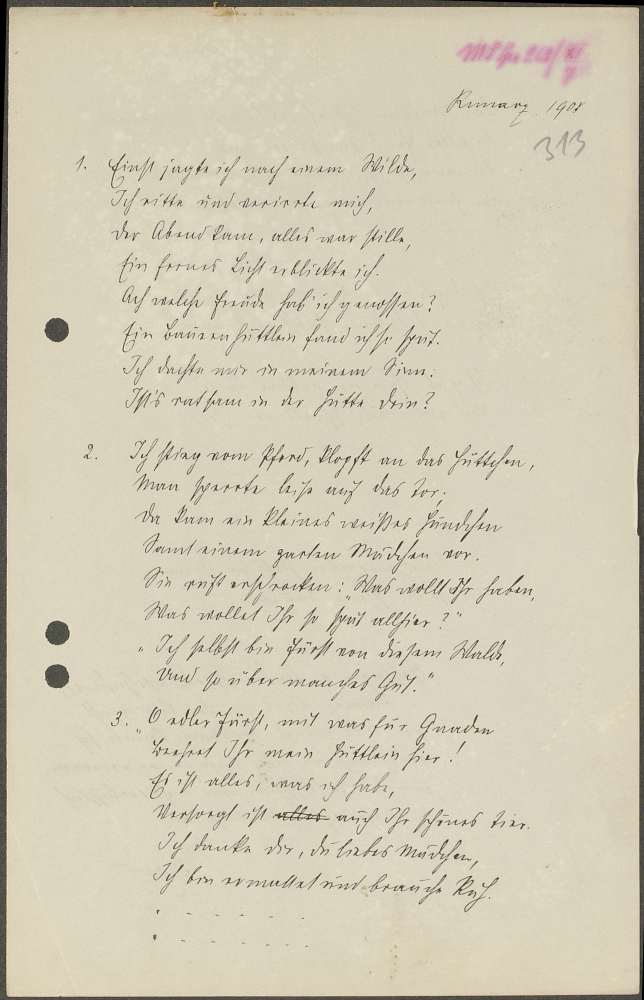 1908
313
1. Einst jagte ich nach einem Wilde,
Ich ritte und verirrte mich,
Der Abend kam, alles war stille,
Ein fernes Licht erblickte ich.
Ach welche Freude hab' ich genossen?
Ein Bauernhüttlein fand ich so spät.
Ich dachte mir in meinem Sinn:
Ist's ratsam in der Hütte drin?
2. Ich stieg vom Pferd, klopft an das Hüttchen,
Man sperrte leise auf das Tor;
Da kam ein kleines weißes Hündchen
Samt einem zarten Mädchen vor.
Sie ruft erschrocken: "Was wollt Ihr haben,
Was wollet Ihr so spät allhier?"
"Ich selbst bin Fürst von diesem Walde,
Und so über manches Gut."
3. "O edler Fürst, mit was für Gnaden
Beehret Ihr mein Hüttlein hier!
Es ist alles, was ich habe,
Versorgt ist alles auch Ihr schönes Tier.
Ich danke dir, du liebes Mädchen,
Ich bin ermattet und brauche Ruh.
. - - - - - -
. - - - - - -